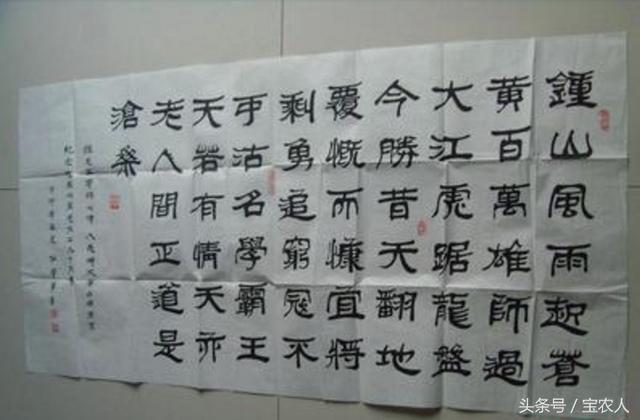 鍾山風雨起蒼
黃百萬雄師過
大江虎踞龍盤
今勝昔天翻地
覆慨而慷宜將
剩勇追窮寇不
可沽名學霸王
天若有情天亦
老人間正道是
滄桑
头条号/宝农人